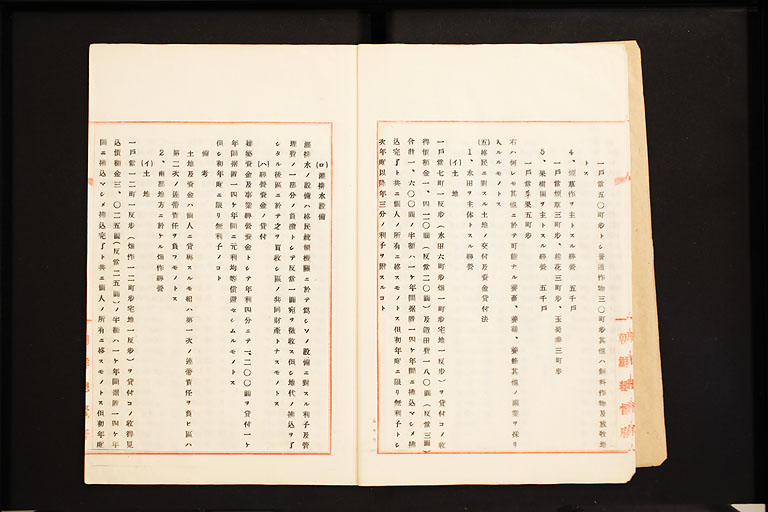 一戸當五〇町歩トシ普通作物三〇町歩其他ハ飼料作物及放牧地
トス
4、煙草作ヲ主トスル經營 五千戸
一戸當煙草三町歩、棉花三町歩、玉蜀黍三町歩
5、果樹園ヲ主トスル經營 五千戸
一戸當果樹五町歩
右ノ何レモ其他ニ於テ可能ナル養畜、養蠶、養蜂其他ノ副業ヲ採リ
入ルルモノトス
(五)移民ニ對スル土地ノ交付及資金貸付法
1、水田ヲ主体トスル經營
(イ)土地
一戸當七町一反歩(水田六町歩畑一町歩宅地一反歩)ヲ貸付コノ收
得價額金一、四二〇圓(反當二〇圓)及造田費一八〇圓(反當三圓)
合計一、六〇〇圓ノ半額ハ一ケ年間据置一四ケ年間ニ拂込マシメ拂
込完了ト共ニ個人ノ所有ニ移スモノトス但初年度ニ限リ無利子トシ
次年度以降年三分ノ利子ヲ附スルコト
(ロ)灌排水設備
灌排水ノ設備ハ移民統轄機關ニ於テ爲シソノ設備ニ對スル利子及管
理費ノ一部分ノ負擔トシテ反當一圓宛ヲ徴收ス但シ地代ノ拂込ヲ了
シタル後區ニ於テ之ヲ買收シ區ノ共同財産トナスモノトス
(ハ)經營資金ノ貸付
建築資金及事業經營資金トシテ年利四分ニテ一、二〇〇圓ヲ貸付一ケ
年間据置一四ケ年間ニ元利均等償還セシムルモノトス
但シ初年度ニ限リ無利子ノコト
備考
土地及資金ハ個人ニ貸與スルモ組ハ第一次ノ連帶責任ヲ負ヒ區ハ
第二次ノ連帶責任ヲ負フモノトス
2、南部地方ニ於ケル畑作經營
(イ)土地
一戸當一二町一反歩(畑作一二町歩宅地一反歩)ヲ貸付コノ收得見
込價額金三、〇二五圓(反當二五圓)ノ半額ハ一ケ年間据置一四ケ年
間ニ拂込マシメ拂込完了ト共ニ個人ノ所有ニ移スモノトス但初年度